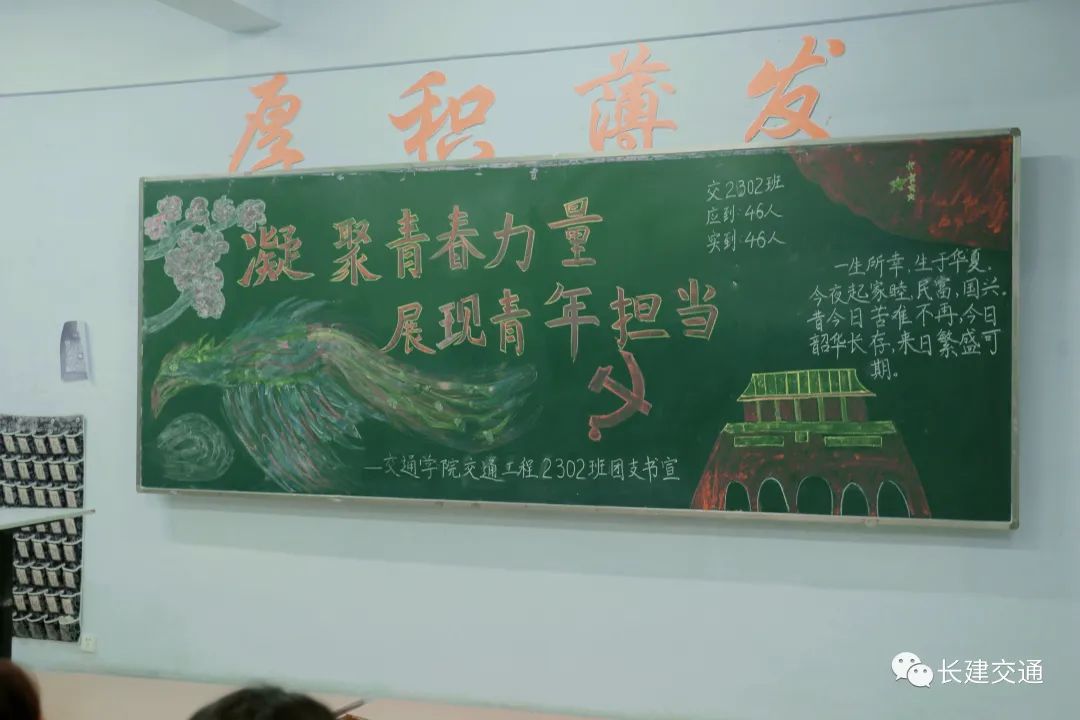 厚积薄发
交2302班
应到:46人
实到:46人
凝聚青春力量
展现青年担当
一生所幸,生于华夏.
今夜起家睦,民富,国兴.
昔今日苦难不再,今日
韶华长存,来日繁盛可
期。
—交通学院交通工程2302班团支书宣
长建交通